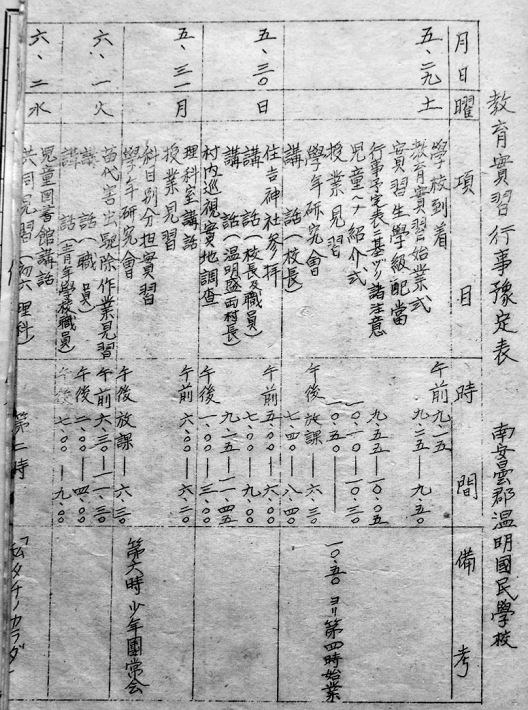 教育實習行事豫定表
南安曇郡温明國民學校
月日 曜 項目 時間 備考
五、二九 土
學校到着 午前九、一五
教育實習始業式 九、二五—九、五〇
實習生學級配當
行事予定表ニ基ヅク諸注意 九、五五—一〇、〇五
兒童ヘノ紹介式 一〇、一〇
授業見習 一〇、五〇 一〇、五〇ヨリ第四時始業
學年研究會 午後 放課—六、三〇
講話(校長) 七、四〇—八、四〇
五、三〇 日
住吉神社參拜 午前 五、〇〇—六、〇〇
講話(校長及職員) 七、〇〇—九、〇〇
講話(温明盛両村長) 九、一五—一一、四五
村内巡視實地調査 午後 一、〇〇—三、〇〇
五、三一 月
理科室講話 午前 六、〇〇—六、二〇
授業見習
科目別分担實習 第六時少年團常会
學年研究會 午後 放課—六、三〇
六、一 火
苗代害虫駆除作業見習 午前 六、三〇—一一、三〇
講話(職員) 午後 二、〇〇—四、〇〇
講話(青年學校職員) 午後 七、〇〇—九、〇〇
六、二 水
兒童図書館講話
共同見習(初六理科) 第二時 「ムタチノカラダ